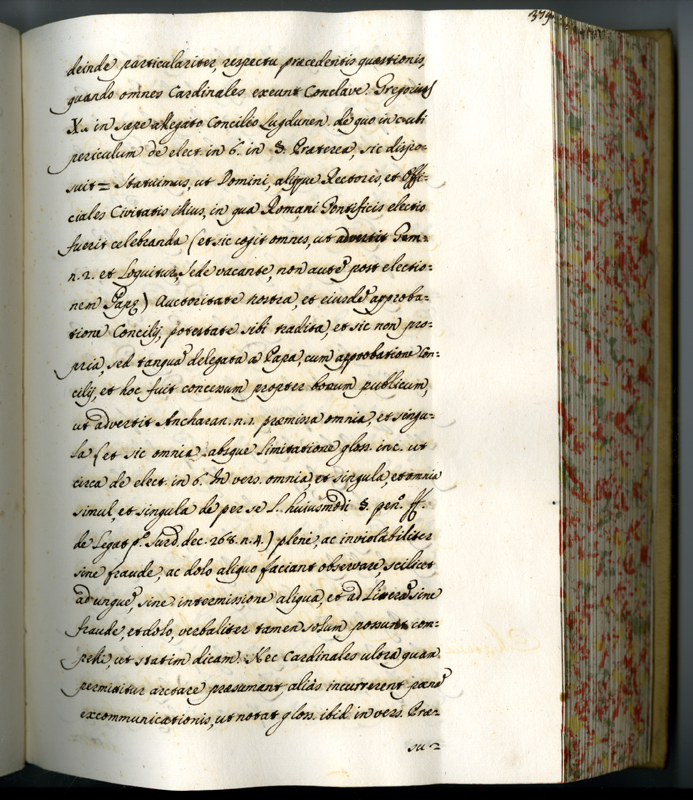 379
deinde particulariter, respectu præcedentis quæstionis,
quando omnes Cardinales exeunt Conclave. Gregorius
X. in sæpe allegato Concilio Lugdunen. de quo in c. ubi
periculum de elect. in 6. in §. Præterea, sic dispo=
suit = Statuimus, ut Domini, aliique Rectores, et Offi=
ciales Civitatis illius, in qua Romani Pontificis electio
fuerit celebranda (et sic cogit omnes, ut advertit Gem=
n. 2. et loquitur, Sede vacante, non autē post electio=
nem Papæ) Auctoritate nostra, et eiusdē approba=
tione Concilij, potestate sibi tradita, et sic non pro=
pria, sed tanquā delegata a Papa, cum approbatione Con=
cilij, et hoc fuit concessum propter bonum publicum,
ut advertit Ancharan. n. 1. præmissa omnia, et singu=
la (et sic omnia absque limitatione glos. inc. ut
circa de elect. in 6. In vers. omnia, et singula, et omnia
simul, et singula de per se l. huiusmodi §. pen. ff.
de Legat. pº. Surd. dec. 268. n. 4.) pleni, ac inviolabiliter
sine fraude, ac dolo aliquo faciant observare, scilicet
ad unguē, sine intermissione aliqua, et ad Literā sine
fraude, et dolo, verbaliter tamen solum possunt com=
pelli, ut statim dicam. Nec Cardinales ultra quam
permittitur arctare præsumant, aliàs incurrerent pœnā
excommunicationis, ut notat glos. ibid. in vers. Præ=
su=